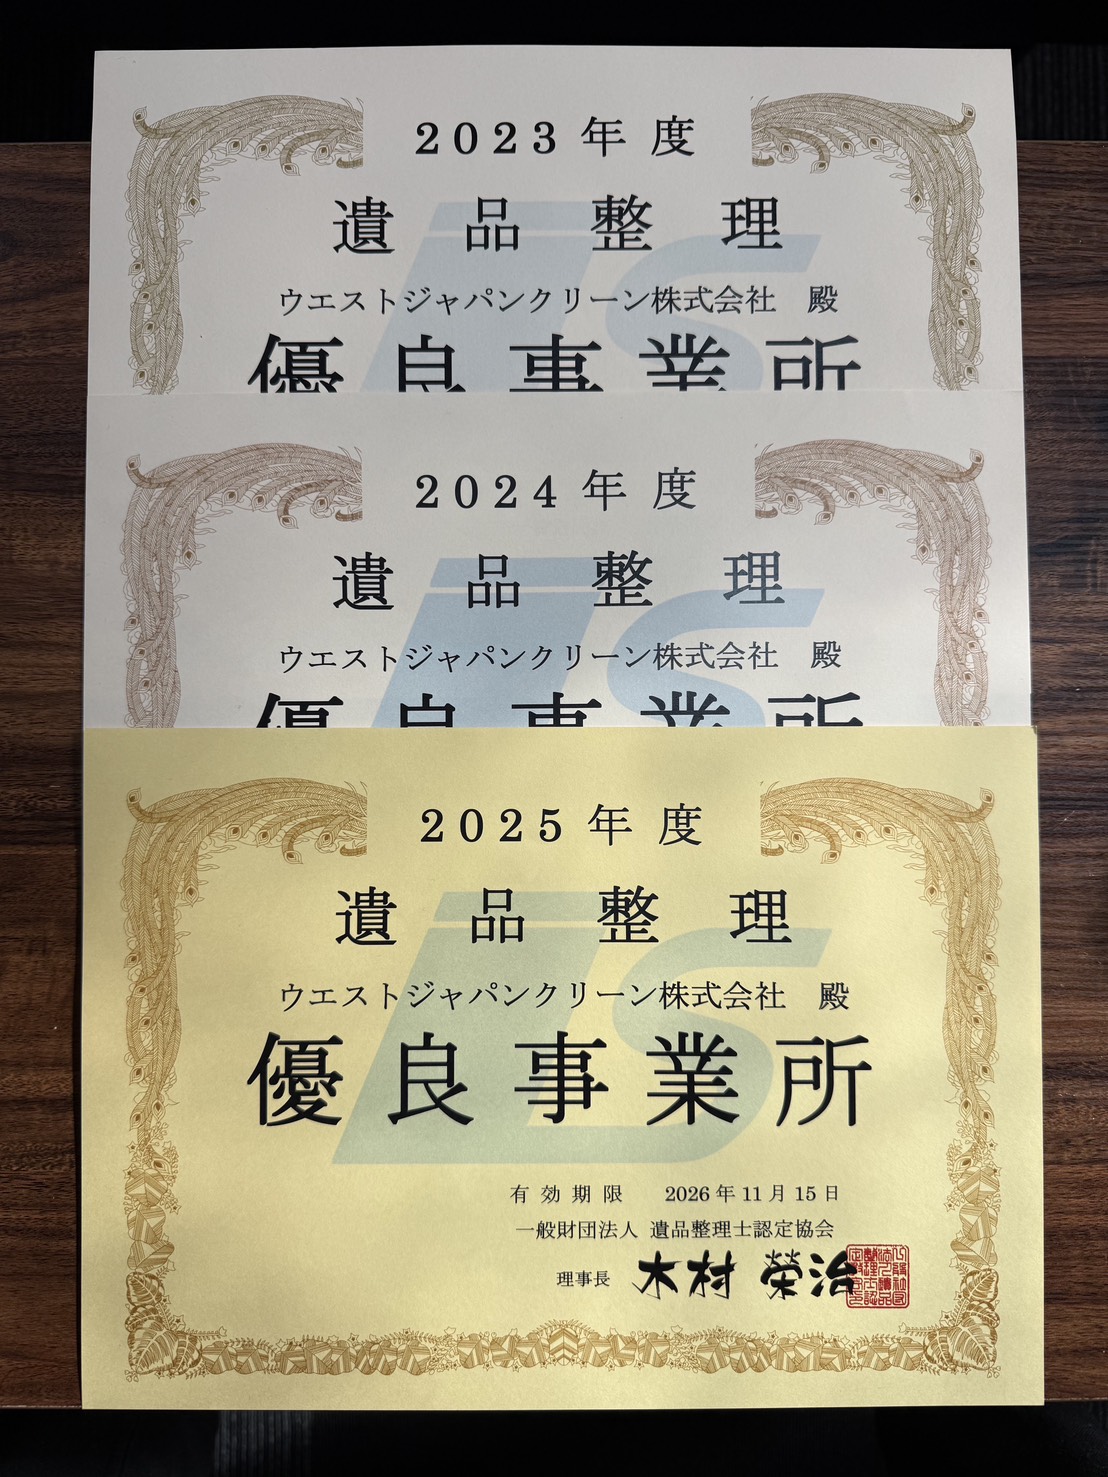 2023年度
遺品整理
ウエストジャパンクリーン株式会社 殿
優良事業所
2024年度
遺品整理
ウエストジャパンクリーン株式会社 殿
優良事業所
2025年度
遺品整理
ウエストジャパンクリーン株式会社 殿
優良事業所
有効期限 2026年11月15日
一般財団法人 遺品整理士認定協会
理事長 木村 榮治